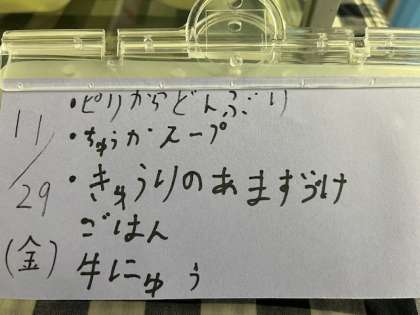 ・ピリからどんぶり
・ちゅうかスープ
・きゅうりのあまずづけ
ごはん
牛にゅう
11/29
(金)